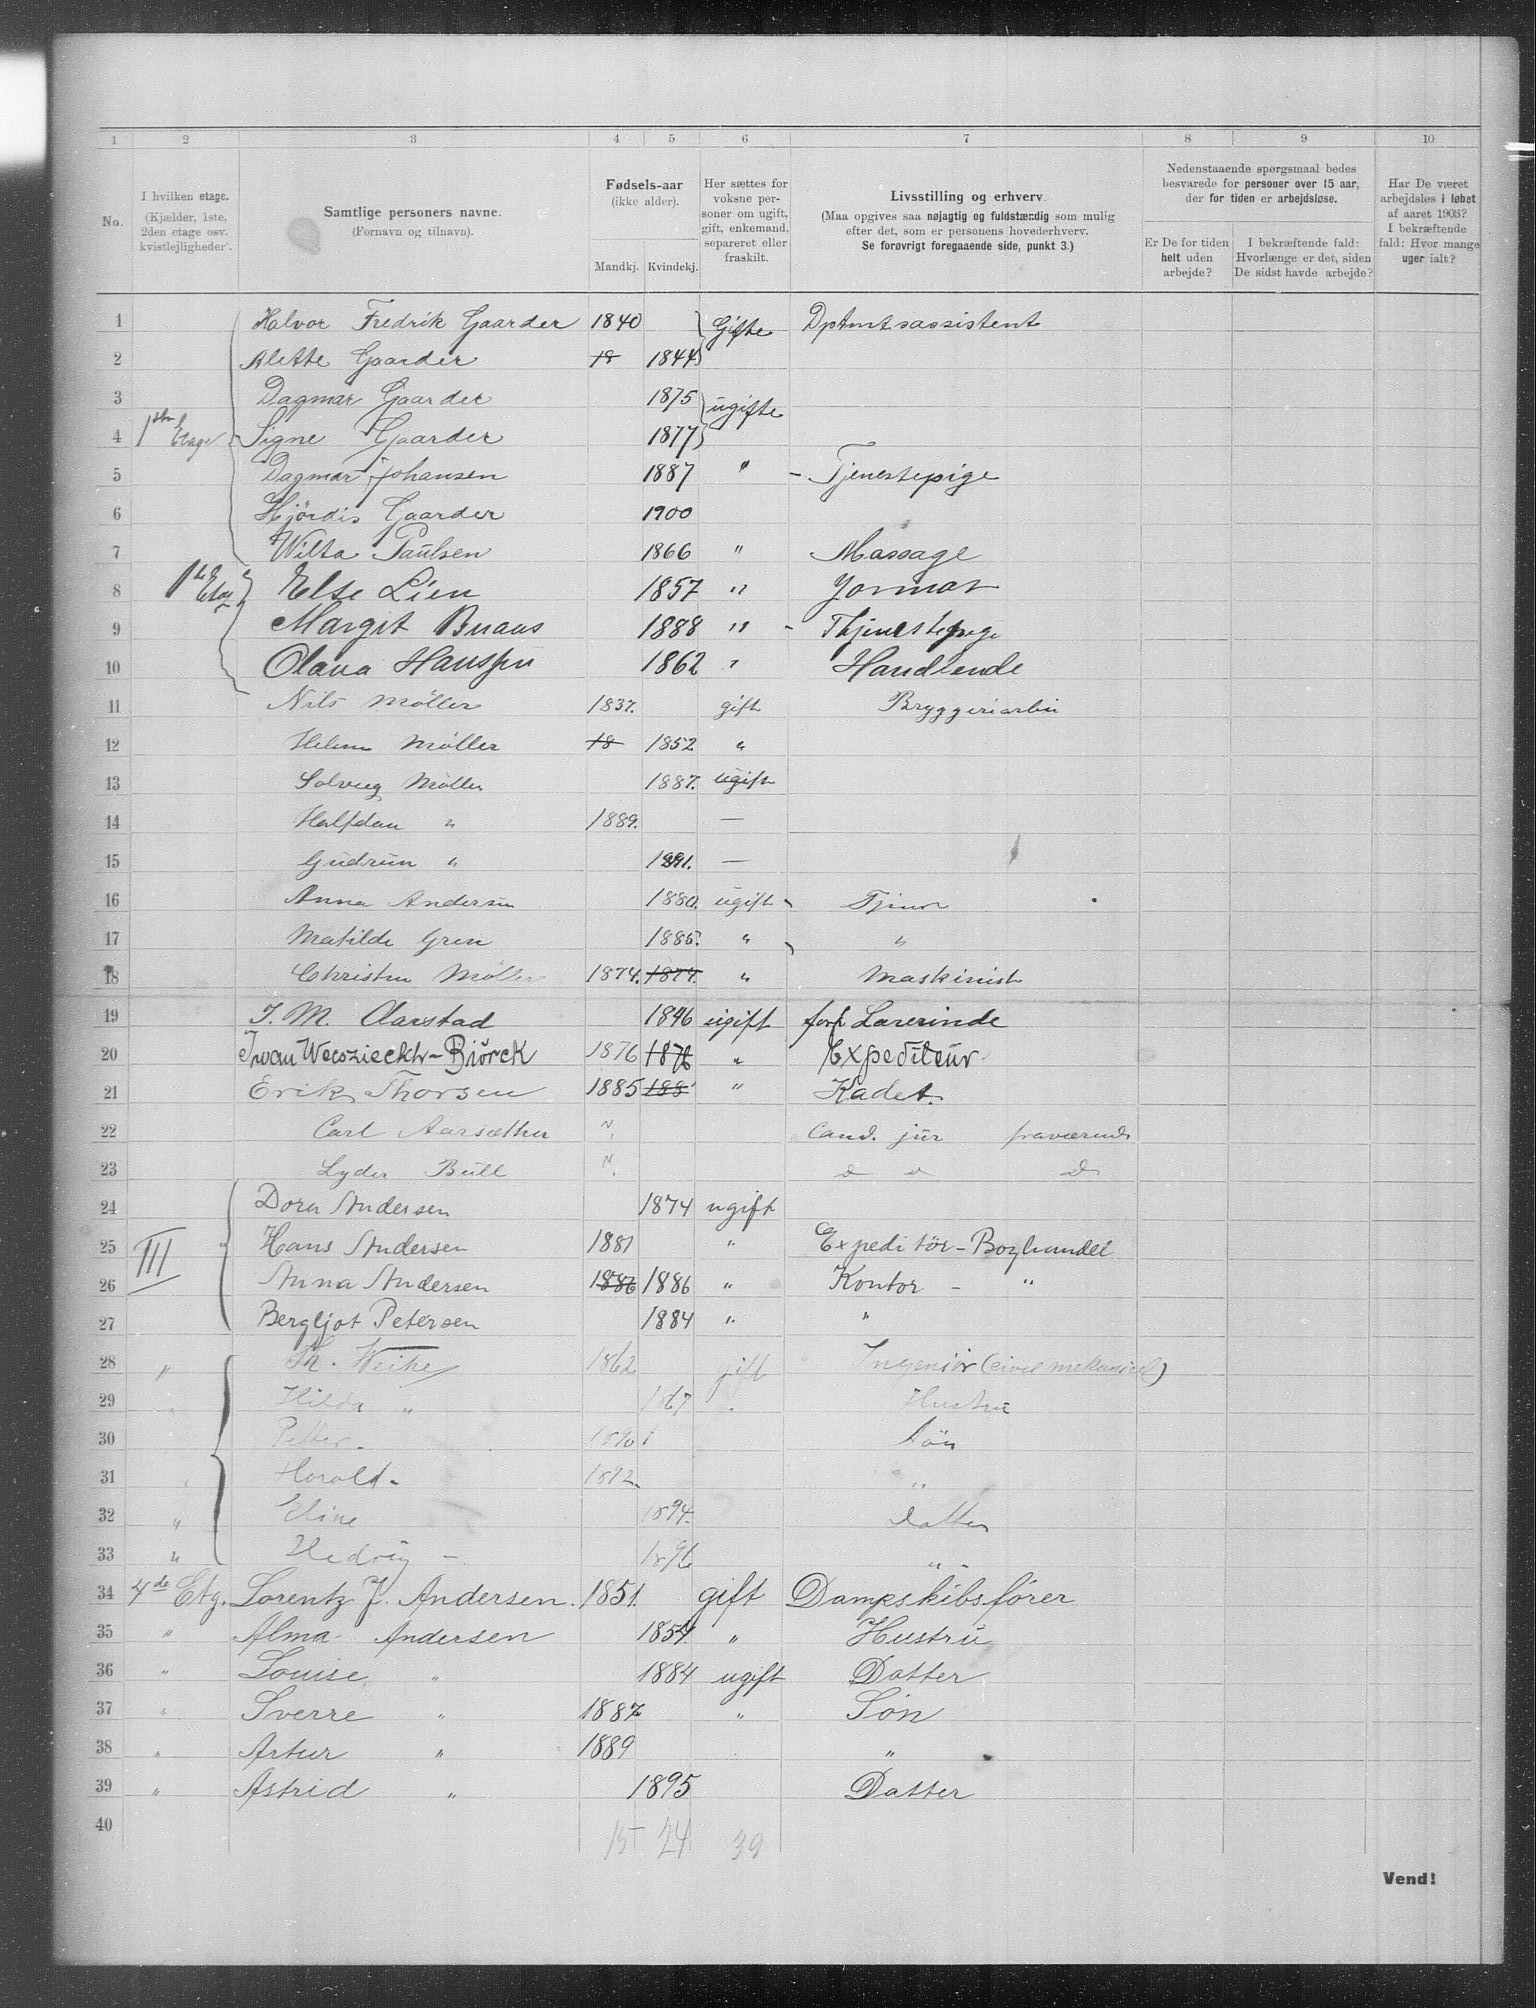 1 2 3 4 5 6 7 8 9 10
No.
I hvilken etage. (Kjælder, 1ste, 2den etage osv. kvistlejligheder).
Samtlige personers navne. (Fornavn og tilnavn).
Fødsels-aar (ikke alder).
Mandkj. Kvindekj.
Her sættes for voksne personer om ugift, gift, enkemand, separeret eller fraskilt.
Livsstilling og erhverv. (Maa opgives saa nøjagtig og fuldstændig som mulig efter det, som er personens hovederhverv. Se forøvrigt foregaaende side, punkt 3.)
Nedenstaaende spørgsmaal bedes besvarede for personer over 15 aar, der for tiden er arbejdsløse.
Er De for tiden helt uden arbejde?
I bekræftende fald: Hvorlænge er det, siden De sidst havde arbejde?
Har De været arbejdsløs i løbet af aaret 1903? I bekræftende fald: Hvor mange uger ialt?
1 Halvor Fredrik Gaarder 1840 Gifte DptAmtsassistent
2 Alette Gaarder 18 1844
3 Dagmar Gaarder 1875 ugifte
4 1ste Etage Signe Gaarder 1877
5 Dagmar Johansen 1887 " - Tjenestepige
6 Hjördis Gaarder 1900
7 Wilta Paulsen 1866 " Massage
8 1ste Etag Else Lien 1857 " Jormor
9 Margit Buaas 1888 " - Thjenestepige
10 Olava Hanssen 1862 " Handlende
11 Nils Møller 1837. gift Bryggeriarbei
12 Helene Møller 18 1852 "
13 Solveig Møller 1887. ugift
14 Halfdan " 1889. —
15 Gudrun " 1891. —
16 Anna Andersen 1880. ugift Tjener
17 Matilde Gren 1885. " "
18 Christen Møller 1874. 1874. " Maskinist
19 J. M. Aarstad 1846 ugift forh Lærerinde
20 Iwan Weoszieckh-Biörck 1876 1876 " Expediteur
21 Erik Thorsen 1885 188 " Kadet.
22 Carl Aarsæther " Cand. jur fraværende
23 Lyder Bull " D D D
24 Dora Andersen 1874 ugift
25 III Hans Andersen 1881 " Expeditör - Boghandel
26 Anna Andersen 1886 1886 " Kontor - "
27 Bergljot Petersen 1884 " "
28 " Th. Weihe 1862 gift Ingeniör (civil mekanisk)
29 " Hilda " 1867 " Hustru
30 Petter - 1890 Sön
31 Harald - 1892 "
32 " Eline 1894. Datter
33 " Hedvig - 1896 "
34 4de Etg. Lorentz J. Andersen. 1851. gift Dampskibsfører
35 " Alma Andersen 1854. " Hustru
36 " Louise " 1884 ugift Datter
37 " Sverre " 1887 " Søn
38 " Artur " 1889 "
39 " Astrid " 1895 Datter
40
15 24 39
Vend!